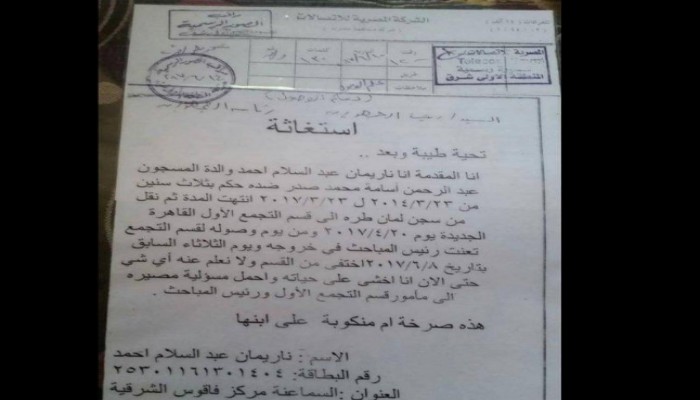 الشركة المصرية للاتصالات
الصور الرسمية
المصرية للاتصالات
Telecom
المنطقة الاولى شرق
استغاثة
تحية طيبة وبعد ..
انا المقدمة انا ناريمان عبد السلام احمد والدة المسجون
عبد الرحمن أسامة محمد صدر ضده حكم بثلاث سنين
من ٢٠١٤/٣/٢٣ ل ٢٠١٧/٣/٢٣ انتهت المدة ثم نقل
من سجن لمان طره الى قسم التجمع الأول القاهرة
الجديدة يوم ٢٠١٧/٤/٢٠ ومن يوم وصوله لقسم التجمع
تعنت رئيس المباحث فى خروجه ويوم الثلاثاء السابق
بتاريخ ٢٠١٧/٦/٨ اختفى من القسم ولا نعلم عنه أي شي
حتى الان انا اخشى على حياته واحمل مسؤلية مصيره
الى مأمور قسم التجمع الأول ورئيس المباحث .
هذه صرخة ام منكوبة على ابنها
الاسم : ناريمان عبد السلام احمد
رقم البطاقة: ٢٥٣٠١١٦١٣٠١٤٠٤
العنوان :السماعنة مركز فاقوس الشرقية